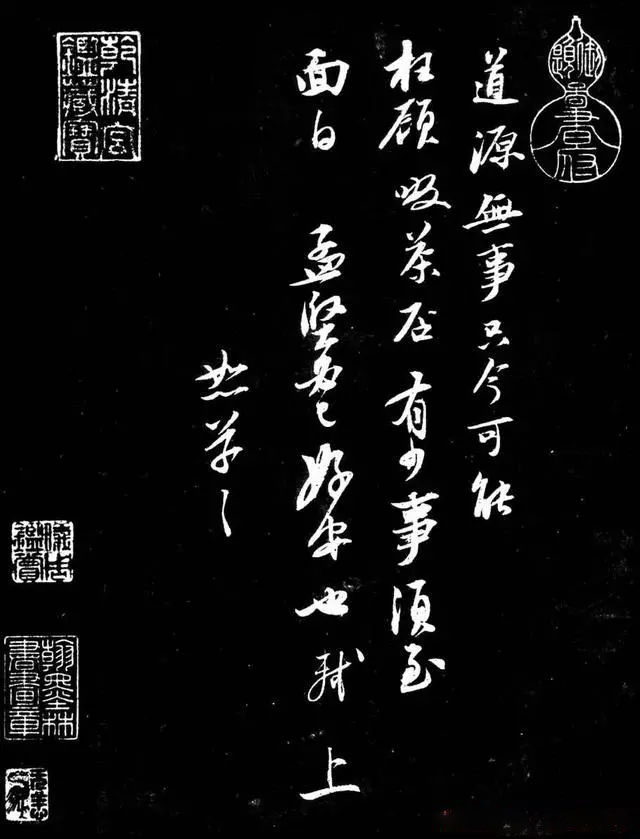 道源無事只今可能
枉顧啜茶否有少事須至
面白 孟堅必已好安也 軾上
恕草草
乾清宮
鑑藏寶
翰墨林
書畫章